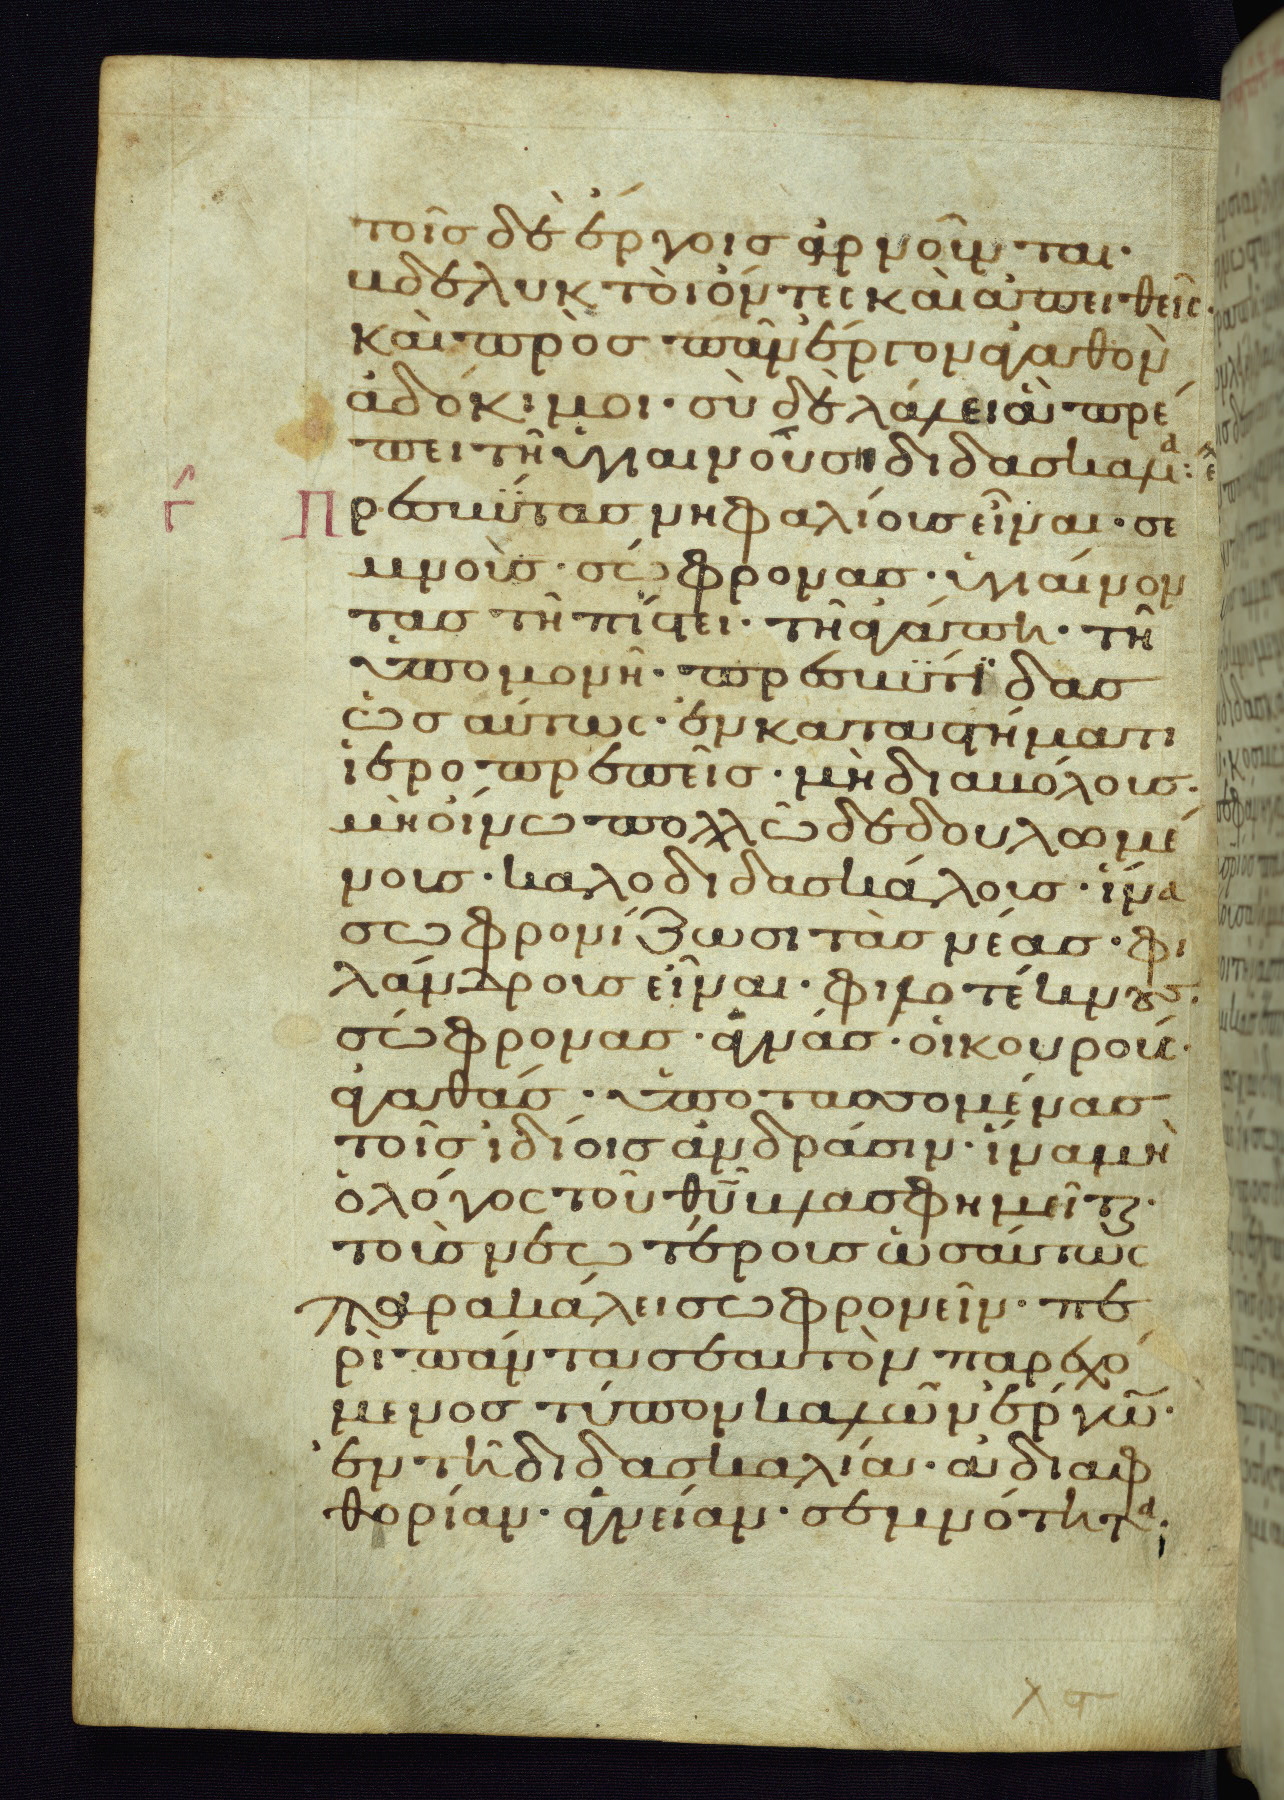 τοῖς δὲ ἔργοις ἀρνοῦνται·
βδελυκτοὶ ὄντες καὶ ἀπειθεῖς·
καὶ πρὸς πᾶν ἔργον ἀγαθὸν
ἀδόκιμοι· σὺ δὲ λάλει ἃ πρέ
πει τῆ ὑγιαινούση διδασκαλ^α:
Γ Πρεσβύτας νηφαλίους εἶναι· σε
μνοὺς· σώφρονας· ὑγιαίνον
τας τῆ πίστει· τῆ ἀγάπη· τῆ
ὑπομονῆ· πρεσβύτιδας
ὡσαύτως· ἐν καταστήματι
ἱεροπρεπεῖς· μὴ διαβόλους·
μὴ οἴνω πολλῶ δεδουλωμέ
νους· καλοδιδασκάλους· ἵνα
σωφρονίζωσι τὰς νέας· φι
λάνδρους εἶναι· φιλοτέκνους·
σώφρονας· ἁγνάς· οἰκουρούς·
ἀγαθάς· ὑποτασσομένας
τοῖς ἰδίοις ἀνδράσιν· ἵνα μὴ
ὁ λόγος τοῦ θυ βλασφημεῖτϗ·
τοὺς νεωτέρους ὡσαύτως
παρακάλει σωφρονεῖν· πε
ρὶ πάντα σεαυτὸν παρεχό
μενος τύπον καλῶν ἔργω̅·
ἐν τῆ διδασκαλία· ἀδιαφ
θορίαν· ἁγνείαν· σεμνότητ^α·
λς